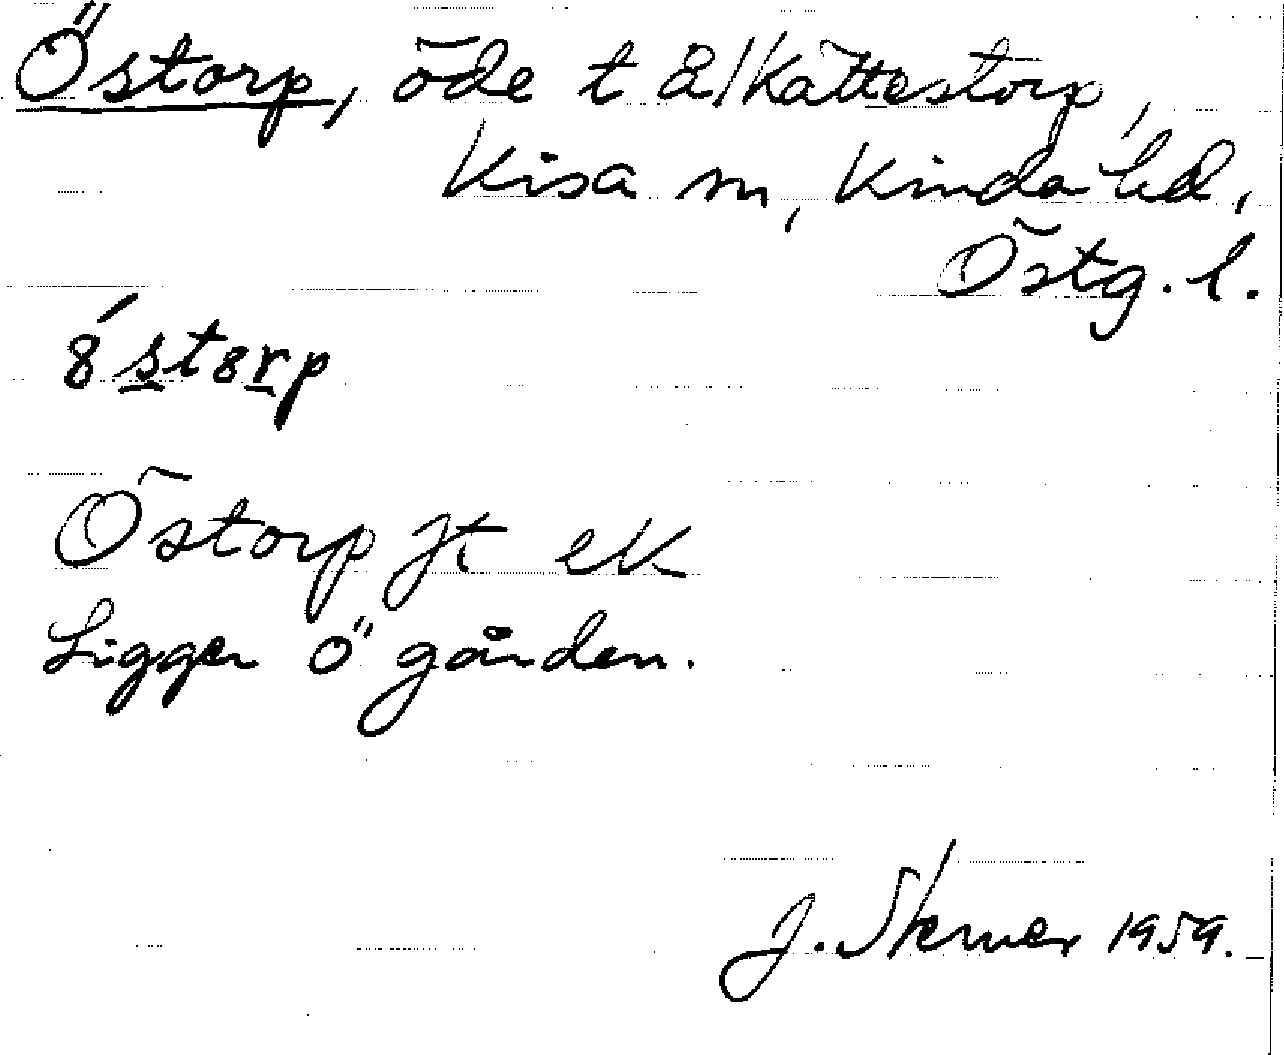 Östorp, öde t å/Kättestorp,
Kisa sn, Kinda hd,
Östg. l.
8́storp
Östorp jt ek
Ligger ö" gården.
J. Sterner 1959.